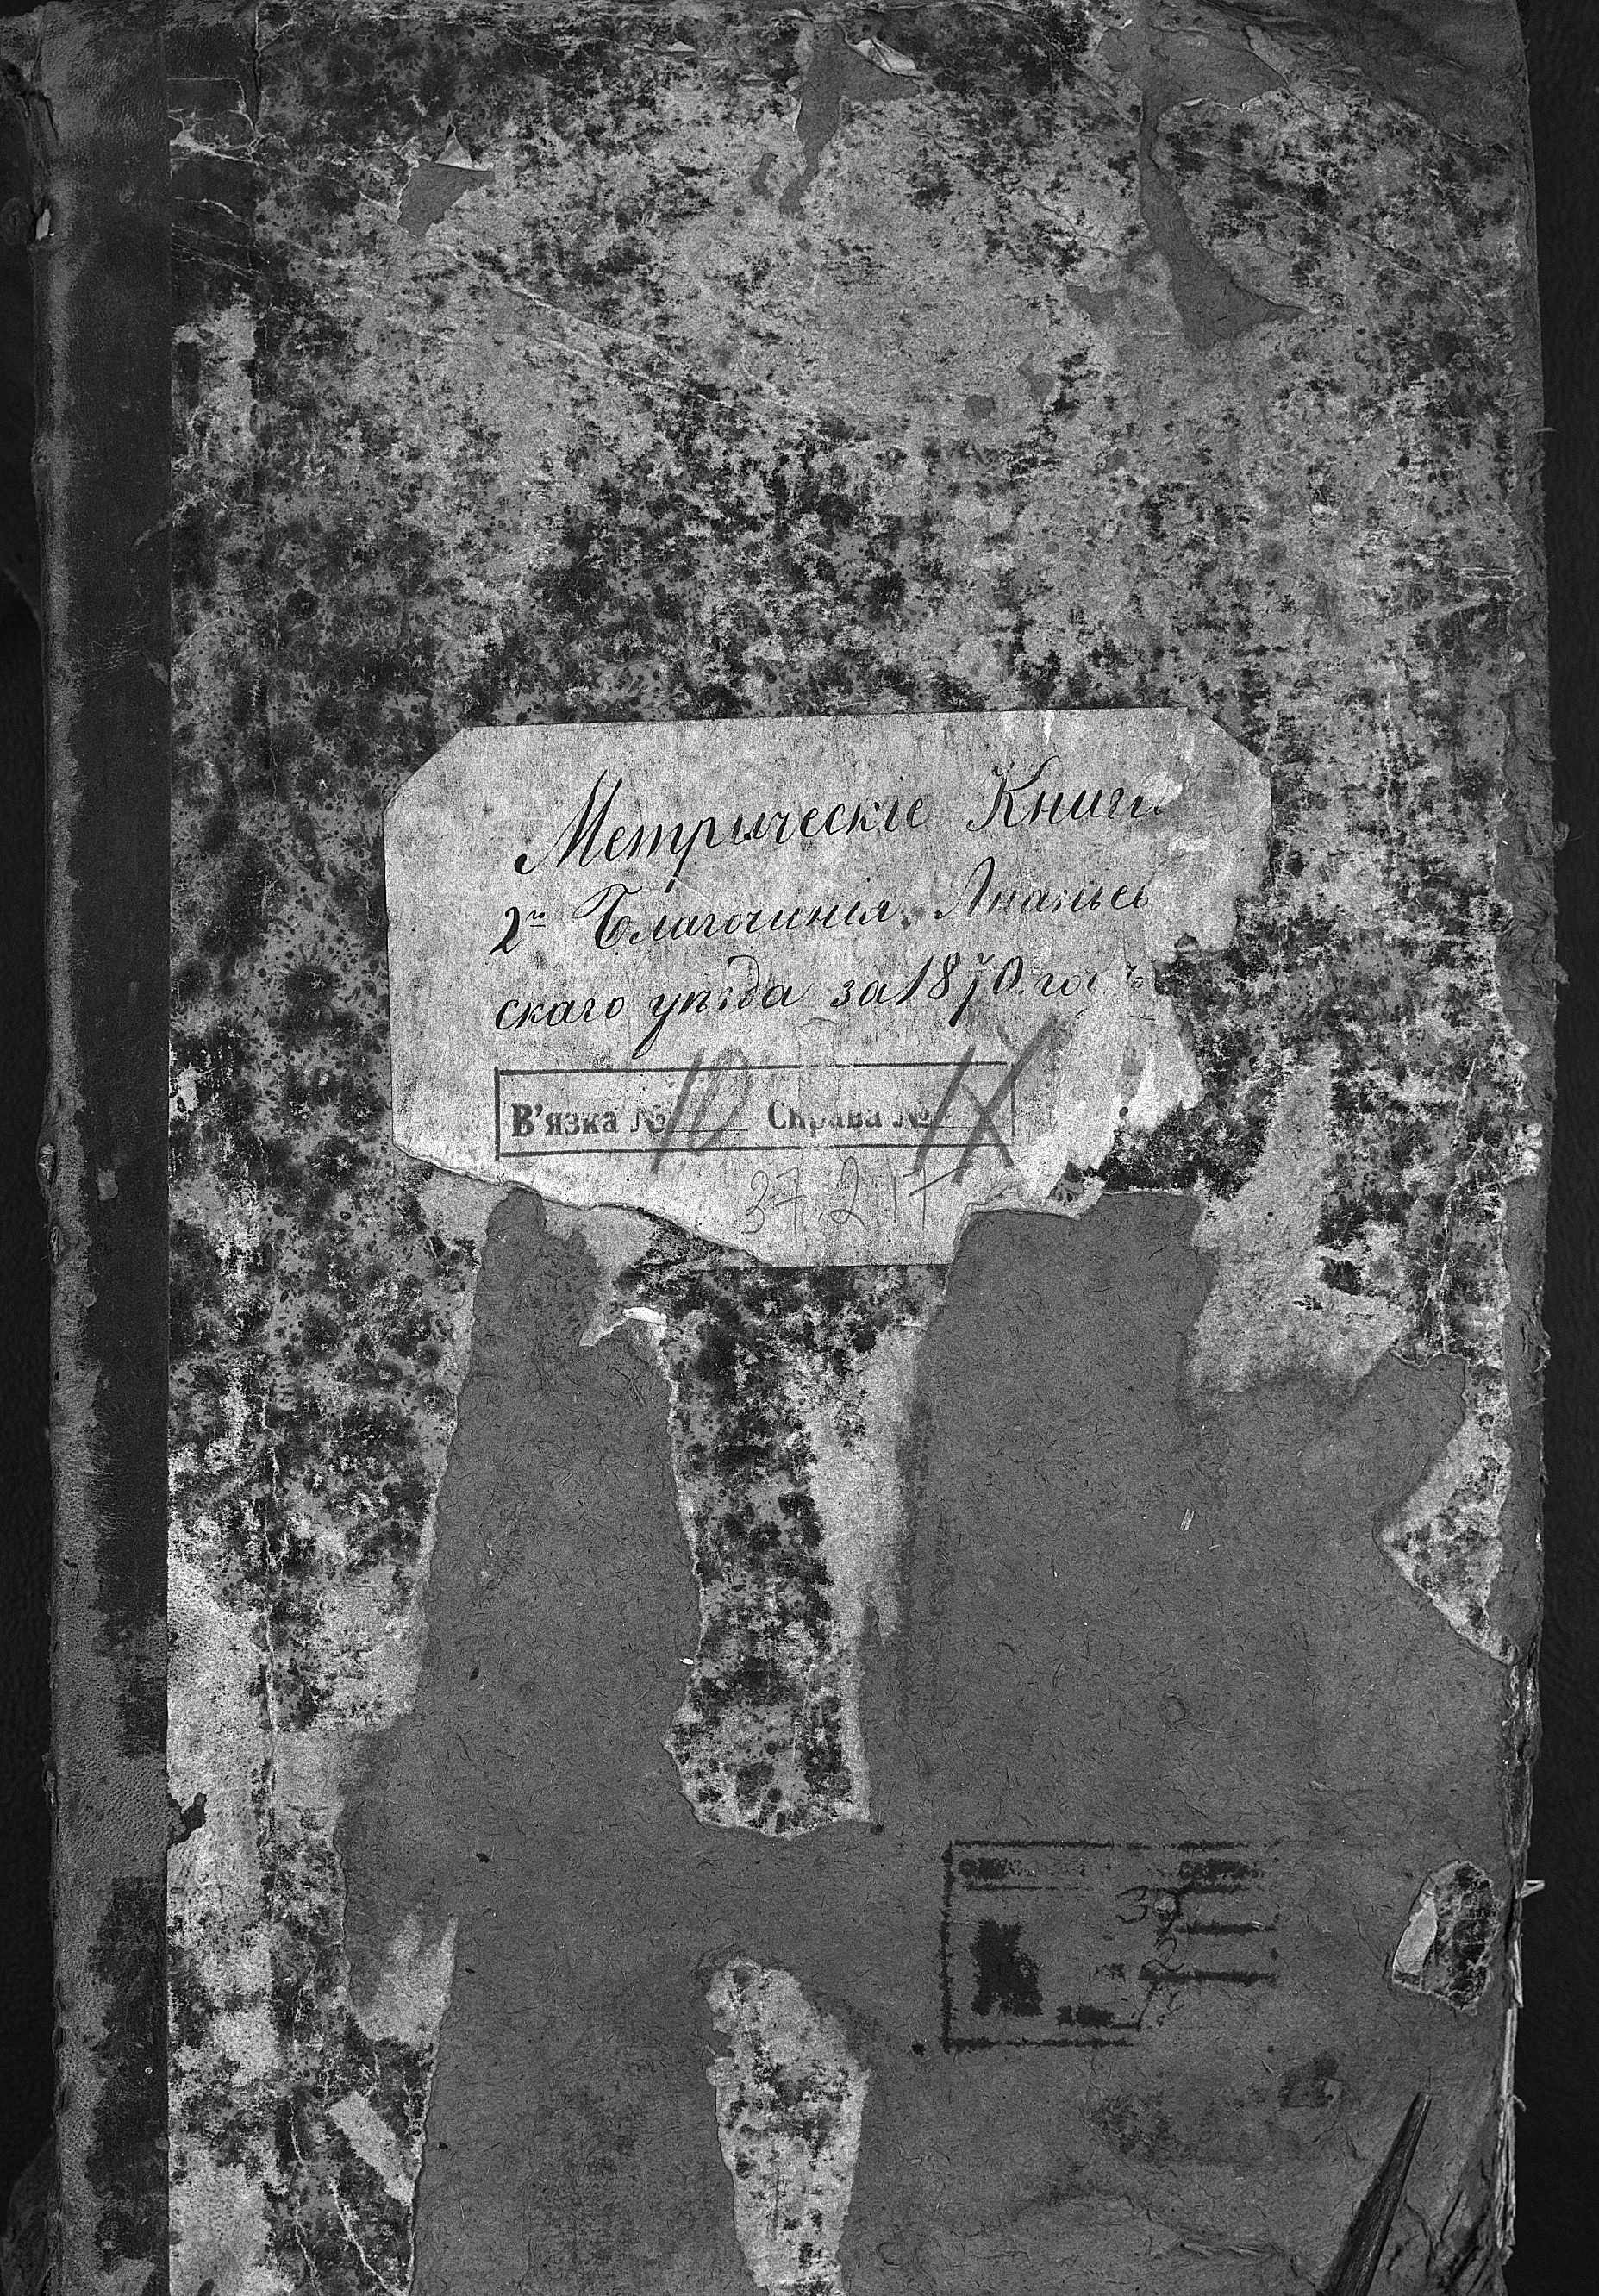 Метрическіе Книги
2го Благочинія Ананьев
скаго уѣзда за 1870 годъ
В'язка № 10 Справа №
37.2.17
37
2